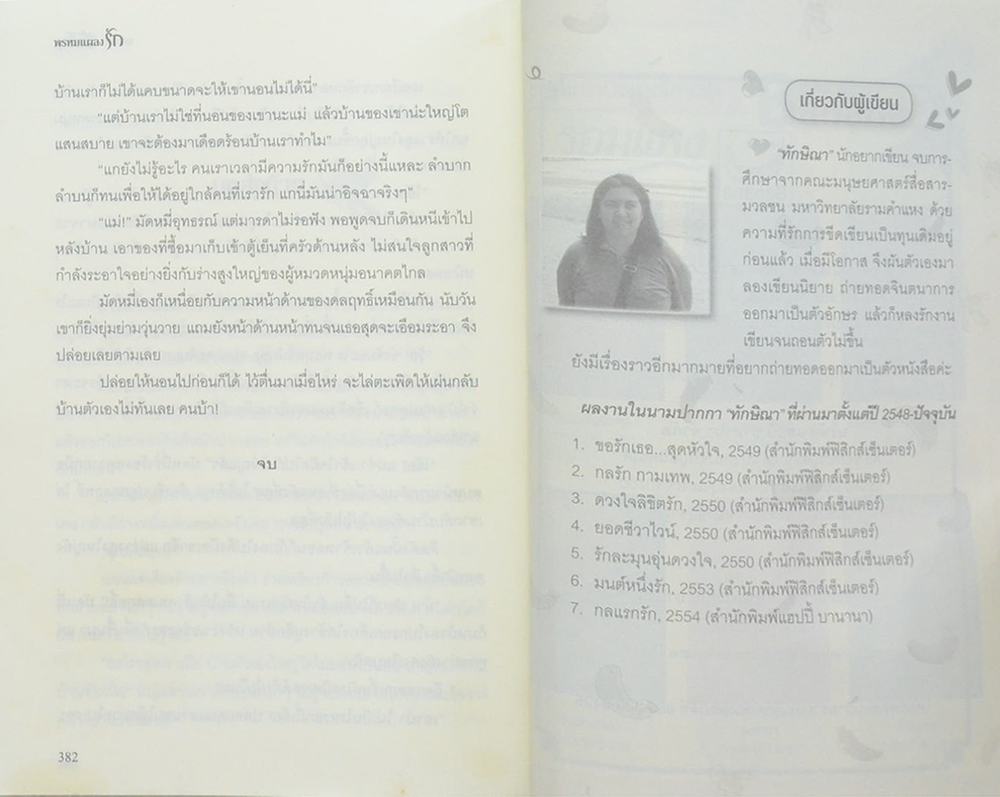 พรหมแผลงรัก
บ้านเราก็ไม่ได้แคบขนาดจะให้เขานอนไม่ได้นี่”
“แต่บ้านเราไม่ใช่ที่นอนของเขานะแม่ แล้วบ้านของเขาน่ะใหญ่โต
แสนสบาย เขาจะต้องมาเดือดร้อนบ้านเราทำไม”
“แกยังไม่รู้อะไร คนเราเวลามีความรักมันก็อย่างนี้แหละ ลำบาก
ลำบนก็ทนเพื่อให้ได้อยู่ใกล้คนที่เรารัก แกนี่มันน่าอิจฉาจริงๆ”
“แม่!” มัดหมี่อุทธรณ์ แต่มารดาไม่รอฟัง พอพูดจบก็เดินหนีเข้าไป
หลังบ้าน เอาของที่ซื้อมาเก็บเข้าตู้เย็นที่ครัวด้านหลัง ไม่สนใจลูกสาวที่
กำลังระอาใจอย่างยิ่งกับร่างสูงใหญ่ของผู้หมวดหนุ่มอนาคตไกล
มัดหมี่เองก็เหนื่อยกับความหน้าด้านของดลฤทธิ์เหมือนกัน นับวัน
เขาก็ยิ่งยุ่มย่ามวุ่นวาย แถมยังหน้าด้านหน้าทนจนเธอสุดจะเอือมระอา จึง
ปล่อยเลยตามเลย
ปล่อยให้นอนไปก่อนก็ได้ ไว้ตื่นมาเมื่อไหร่ จะไล่ตะเพิดให้เผ่นกลับ
บ้านตัวเองไม่ทันเลย คนบ้า!
จบ
382
เกี่ยวกับผู้เขียน
“ทักษิณา” นักอยากเขียน จบการ-
ศึกษาจากคณะมนุษยศาสตร์สื่อสาร-
มวลชน มหาวิทยาลัยรามคำแหง ด้วย
ความที่รักการขีดเขียนเป็นทุนเดิมอยู่
ก่อนแล้ว เมื่อมีโอกาส จึงผันตัวเองมา
ลองเขียนนิยาย ถ่ายทอดจินตนาการ
ออกมาเป็นตัวอักษร แล้วก็หลงรักงาน
เขียนจนถอนตัวไม่ขึ้น
ยังมีเรื่องราวอีกมากมายที่อยากถ่ายทอดออกมาเป็นตัวหนังสือค่ะ
ผลงานในนามปากกา “ทักษิณา” ที่ผ่านมาตั้งแต่ปี 2548-ปัจจุบัน
1. ขอรักเธอ...สุดหัวใจ, 2549 (สำนักพิมพ์ฟิสิกส์เซ็นเตอร์)
2. กลรัก กามเทพ, 2549 (สำนักพิมพ์ฟิสิกส์เซ็นเตอร์)
3. ดวงใจลิขิตรัก, 2550 (สำนักพิมพ์ฟิสิกส์เซ็นเตอร์)
4. ยอดชีวาไวน์, 2550 (สำนักพิมพ์ฟิสิกส์เซ็นเตอร์)
5. รักละมุนอุ่นดวงใจ, 2550 (สำนักพิมพ์ฟิสิกส์เซ็นเตอร์)
6. มนต์หนึ่งรัก, 2553 (สำนักพิมพ์ฟิสิกส์เซ็นเตอร์)
7. กลแรกรัก, 2554 (สำนักพิมพ์แฮปปี้ บานานา)